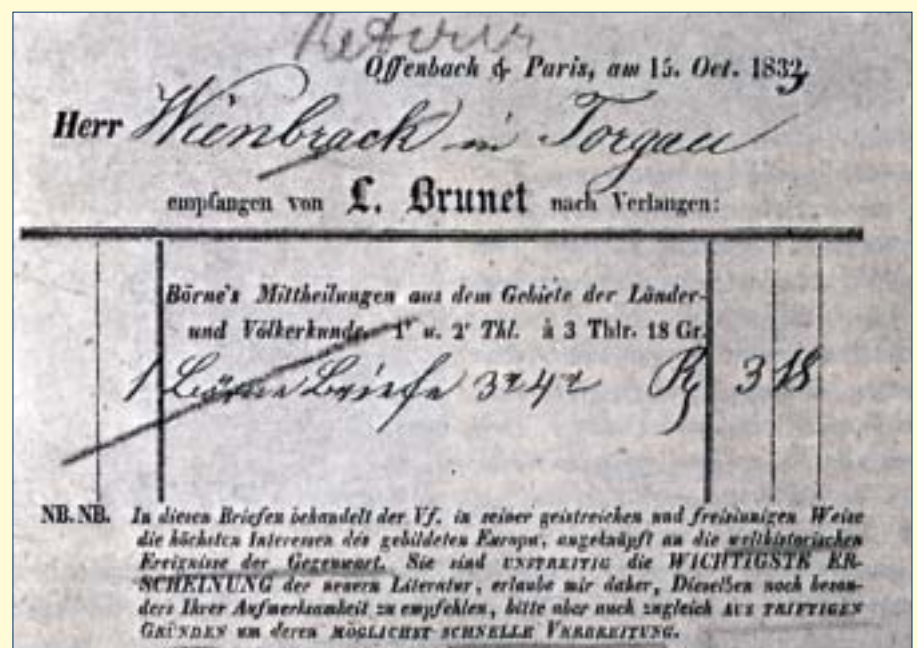 Retour
Offenbach & Paris, am 15. Oct. 1833
Herr Wienbrack in Torgau
empfangen von L. Brunet nach Verlangen:
Börne's Mittheilungen aus dem Gebiete der Länder-
und Völkerkunde. 1r u. 2r Thl. à 3 Thlr. 18 Gr.
1 Börne Briefe 3r 4r 3 18
NB. NB. In diesen Briefen behandelt der Vf. in seiner geistreichen und freisinnigen Weise
die höchsten Interessen des gebildeten Europa, angeknüpft an die welthistorischen
Ereignisse der Gegenwart. Sie sind UNSTREITIG die WICHTIGSTE ER-
SCHEINUNG der neuern Literatur, erlaube mir daher, Dieselben noch beson-
ders Ihrer Aufmerksamkeit zu empfehlen, bitte aber auch zugleich AUS TRIFTIGEN
GRÜNDEN um deren MÖGLICHST SCHNELLE VERBREITUNG.